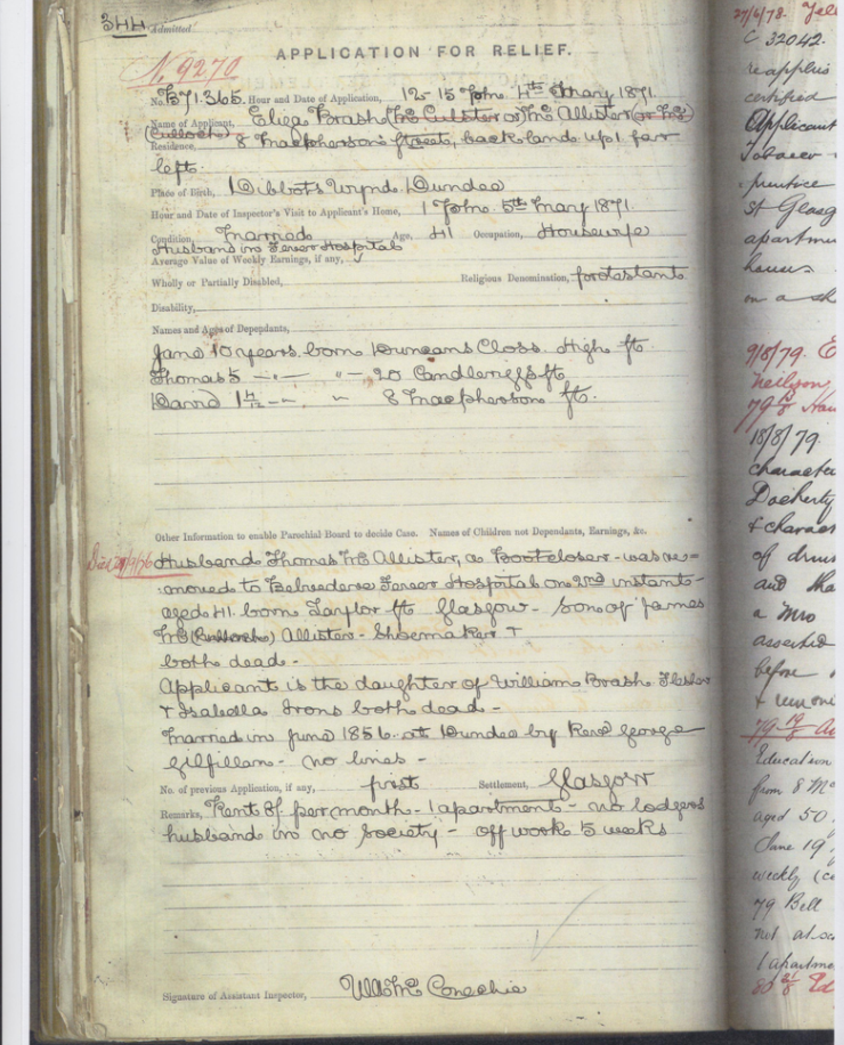 344 Admitted
APPLICATION FOR RELIEF.
N. 9270
No. B71.365. Hour and Date of Application, 12-15 Pm. 4th May 1871.
Name of Applicant, Eliza Brash (Mc Culster or) Mc Allister (or Mc
(Culloch)
Residence, 8 Macpherson's Street, back lands up 1. far
left.
Place of Birth, Dibbots Wynd. Dundee
Hour and Date of Inspector's Visit to Applicant's Home, 1 Pm. 5th May 1871.
Condition, Married Age, 41 Occupation, Housewife
Husband in Fever Hospital
Average Value of Weekly Earnings, if any,
Wholly or Partially Disabled, Religious Denomination, protestant
Disability,
Names and Ages of Dependants,
Jane 10 years. born Duncans Closs. High St.
Thomas 5 -"- "- 20 Candleriggs St
David 1 4/12 -"- " 8 Macpherson St.
Other Information to enable Parochial Board to decide Case. Names of Children not Dependants, Earnings, &c.
Husband Thomas Mc Allister, a Bootcloser - was re=
moved to Belvedere Fever Hospital on 2nd instant -
aged 41. born Taylor St Glasgow - Son of James
Mc (Culloch) Allister - Shoemaker +
both dead -
Applicant is the daughter of William Brash Flesher
+ Isabella Irons both dead -
Married in June 1856 at Dundee by Revd George
Gilfillan - no lines -
No. of previous Application, if any, first Settlement, Glasgow
Remarks, Rent 8/. per month - 1 apartment - no lodgers
husband in no Society - off work 5 weeks
Signature of Assistant Inspector, Wm Mc Conechie
27/6/78.
C 32042.
reapplies
certified
Applicant
Tobacco
prentice
St Glasg
apartme
house
in a sh
9/8/79. E
Neilson
18/8/79.
character
Docherty
& charac
of drun
and tha
a Mrs
asserted
before
& remove
Education
from 8 Mc
aged 50.
Jane 19
weekly (c
79 Bell
not at sc
1 apartme